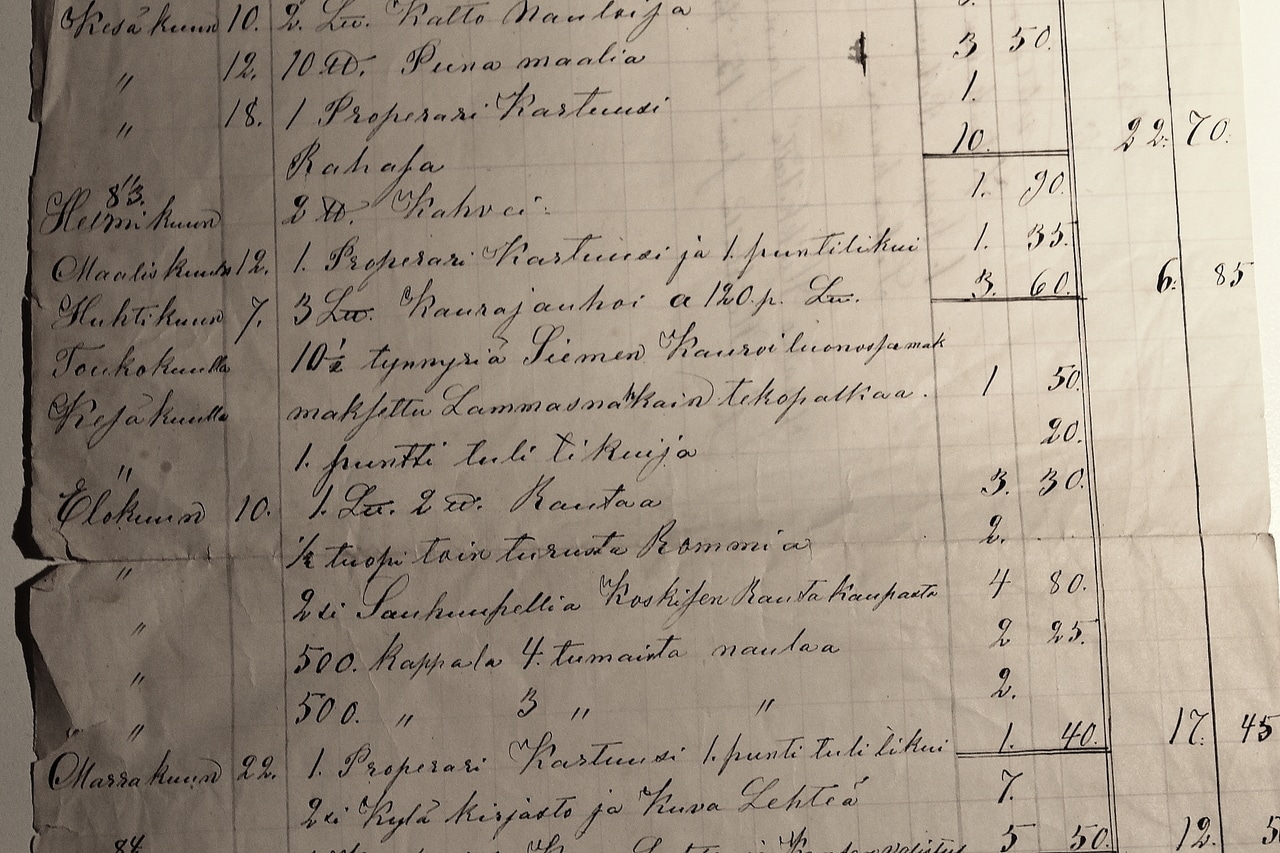 Kesäkuun 10. 2. Lu. Katto Nauloija
" 12. 10 ℔. Puna maalia 3 50.
" 18. 1 Properari Kartuusi 1.
Rahasa 10. 22. 70.
83.
Helmikuun 2 ℔. Kahvei 1. 90.
Maaliskuun 12. 1. Properari Kartuusi ja 1. puntilikui 1. 35.
Huhtikuun 7. 3 Lu. Kaurajauhoi a 120.p. Lu. 3. 60. 6. 85
Toukokuulla 10 ½ tynnyriä Siemen Kauroi
Kesäkuulla maksettu Lammasnahkain tekopalkaa. 1 50.
" 1. puntti tuli tikuija 20.
Elokuun 10. 1. Lu. 2 ℔. Rautaa 3. 30.
" ½ tuopi toin turusta Rommia 2.
" 2si Sauhuupellia Koskisen Rautakaupasta 4 80.
" 500. kappala 4. tumaista naulaa 2 25.
" 500. " 3 " " 2.
Marrakuun 22. 1. Properari Kartuusi 1. punti tuli tikui 1. 40. 17. 45
2si Kylä kirjasto ja Kuva Lehteä 7.
84. 5 50. 12. 5